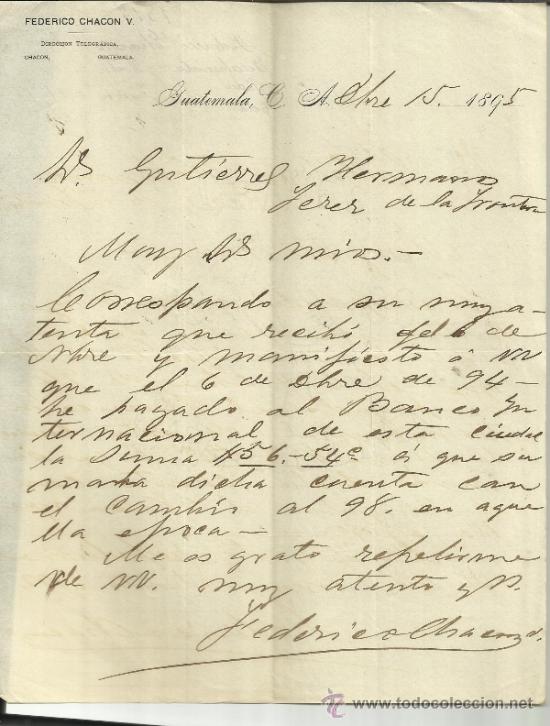 FEDERICO CHACON V.
DIRECCION TELEGRÁFICA.
CHACON, GUATEMALA.
Guatemala, C. A. Dbre 15. 1895
Srs Gutierrez Hermanos
Jerez de la Frontera
Muy Srs mios.-
Correspondo a su muy a-
tenta que recibí del 6 de
Nbre y manifiesto á VV
que el 6 de Dbre de 94-
he pagado al Banco In
ternacional de esta ciudad
la suma 56.-54c á que su
maba dicha cuenta con
el cambio al 98. en aque
lla epoca-
Me es grato repetirme
de VV. muy atento y S.
Federico Chacon V.
todocoleccion
www.todocoleccion.net